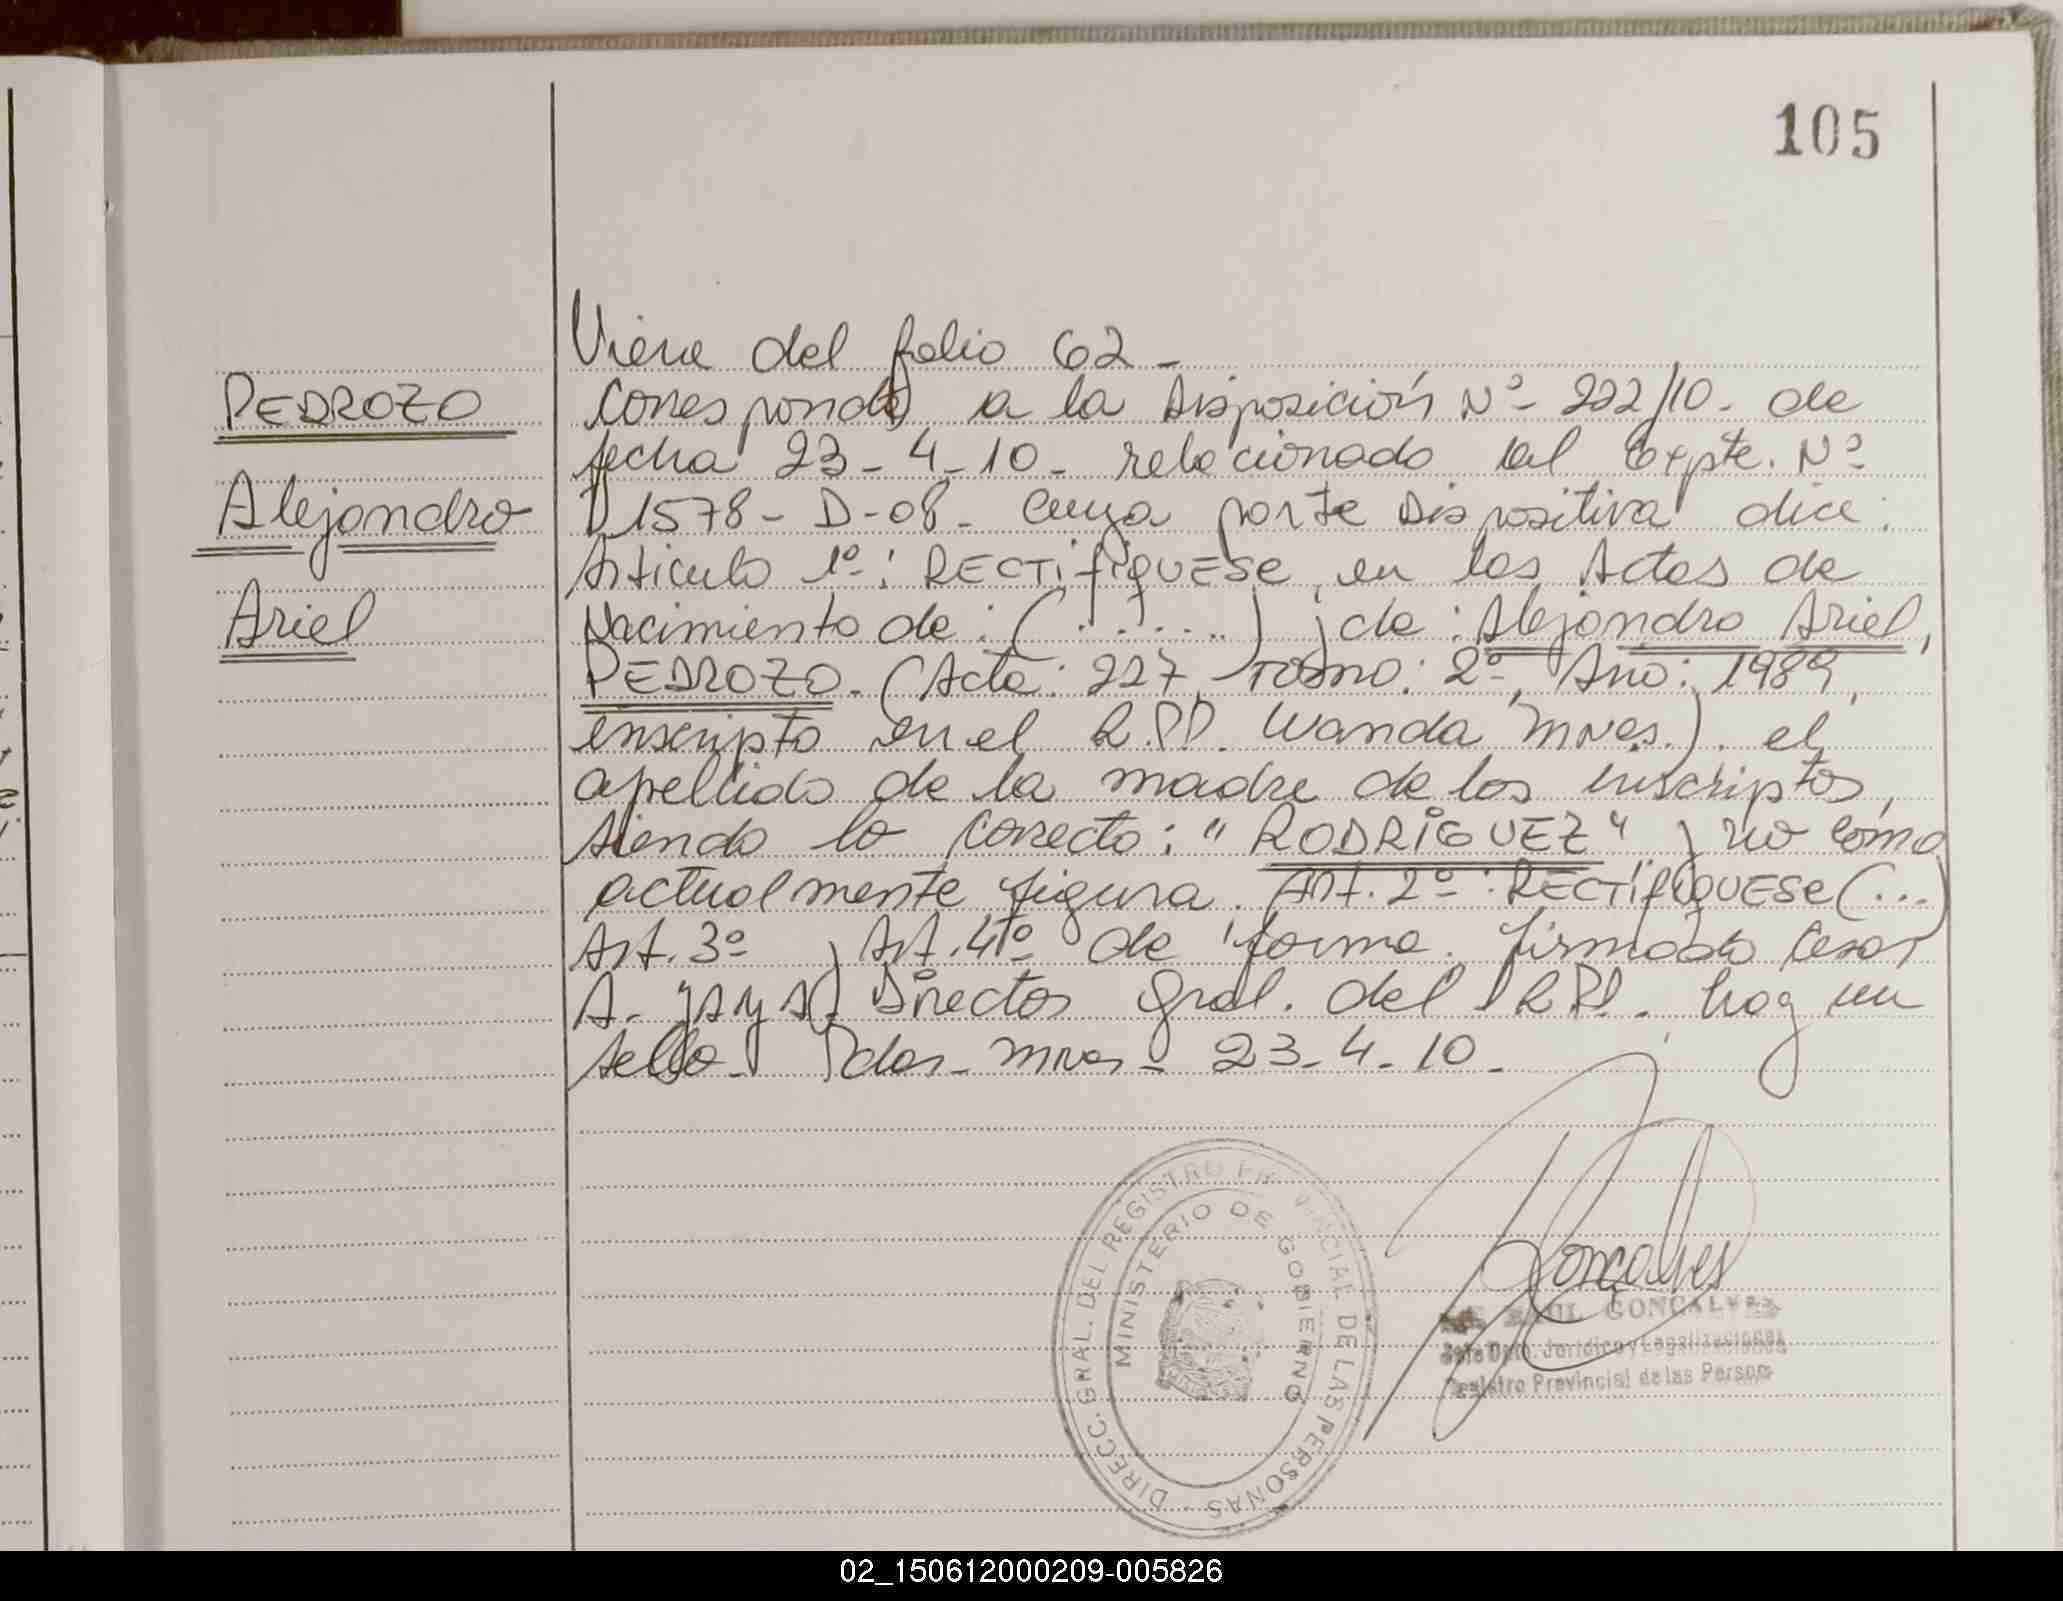 105
Viene del folio 62 -
PEDROZO
Corresponde a la Disposición Nº- 222/10- de
fecha 23-4-10- relacionado al Expte. Nº
Alejandro
1578-D-08- cuya parte Dispositiva dice:
Articulo 1º: RECTIFIQUESE, en las Actas de
Ariel
Nacimiento de: (.......) ; de: Alejandro Ariel,
PEDROZO. (Acta: 227, Tomo: 2º, Año: 1989,
inscripto en el R.P.P. Wanda Mnes.). el
apellido de la madre de los inscriptos,
siendo lo correcto: "RODRIGUEZ" y no como
actualmente figura. Art. 2º: RECTIFIQUESE (...)
Art. 3º y Art. 4º de forma. firmado Cesar
A. Director Gral. del R.P.P. hay un
sello. Pdas- Mnes- 23-4-10-
DIRECC. GRAL. DEL REGISTRO PROVINCIAL DE LAS PERSONAS
MINISTERIO DE GOBIERNO
Gonçalves
RAUL GONCALVES
Jefe Dpto. Jurídico y Legalizaciones
Registro Provincial de las Person
02_150612000209-005826